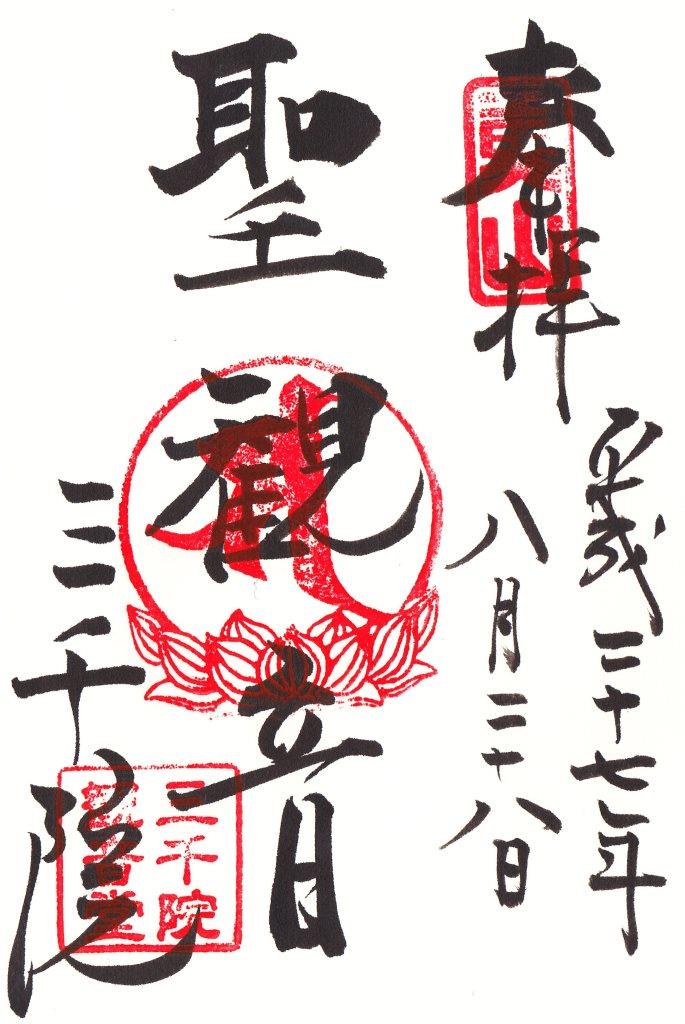 奉拝
平成二十七年
八月二十八日
聖観音
三千院
三千院
観音堂